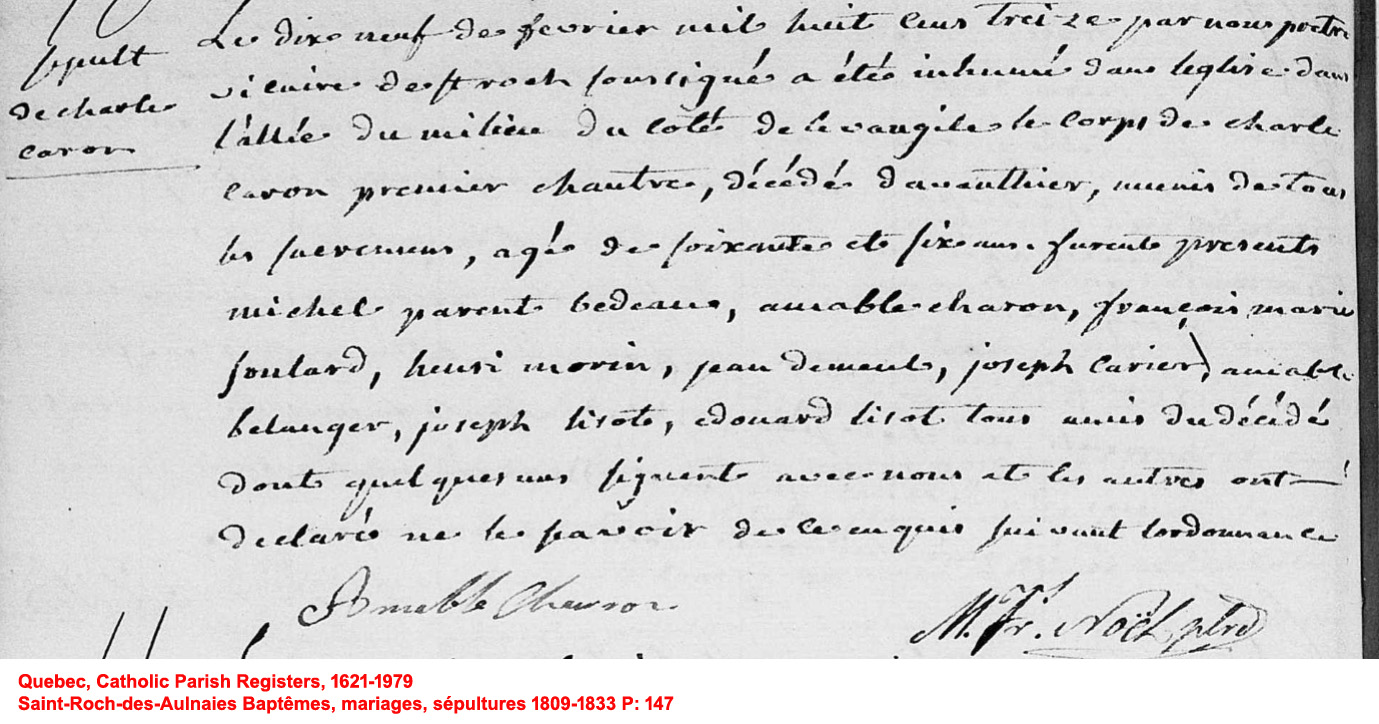 Le dix neuf de fevrier mil huit cens treize par nous pretre
sepult
vicaire de st roch soussigné a étée inhumé dans leglise dans
de charle
l'allée du milieu du coté de levangile le corps de charle
caron
caron premier chantre, décédé davanthier, munis de tous
les sacremens, agé de soixante et six ans. furent presents
michel parent bedeau, amable charon, françois marie
soulard, henri morin, jean dement, joseph carier, amable
belanger, joseph lisot, edouard lisot tous amis du décédé
dont quelques uns signent avec nous et les autres ont
declaré ne le savoir de ce enquis suivant lordonnance
Amable
M. Fr. Noël ptre
Quebec, Catholic Parish Registers, 1621-1979
Saint-Roch-des-Aulnaies Baptêmes, mariages, sépultures 1809-1833 P: 147